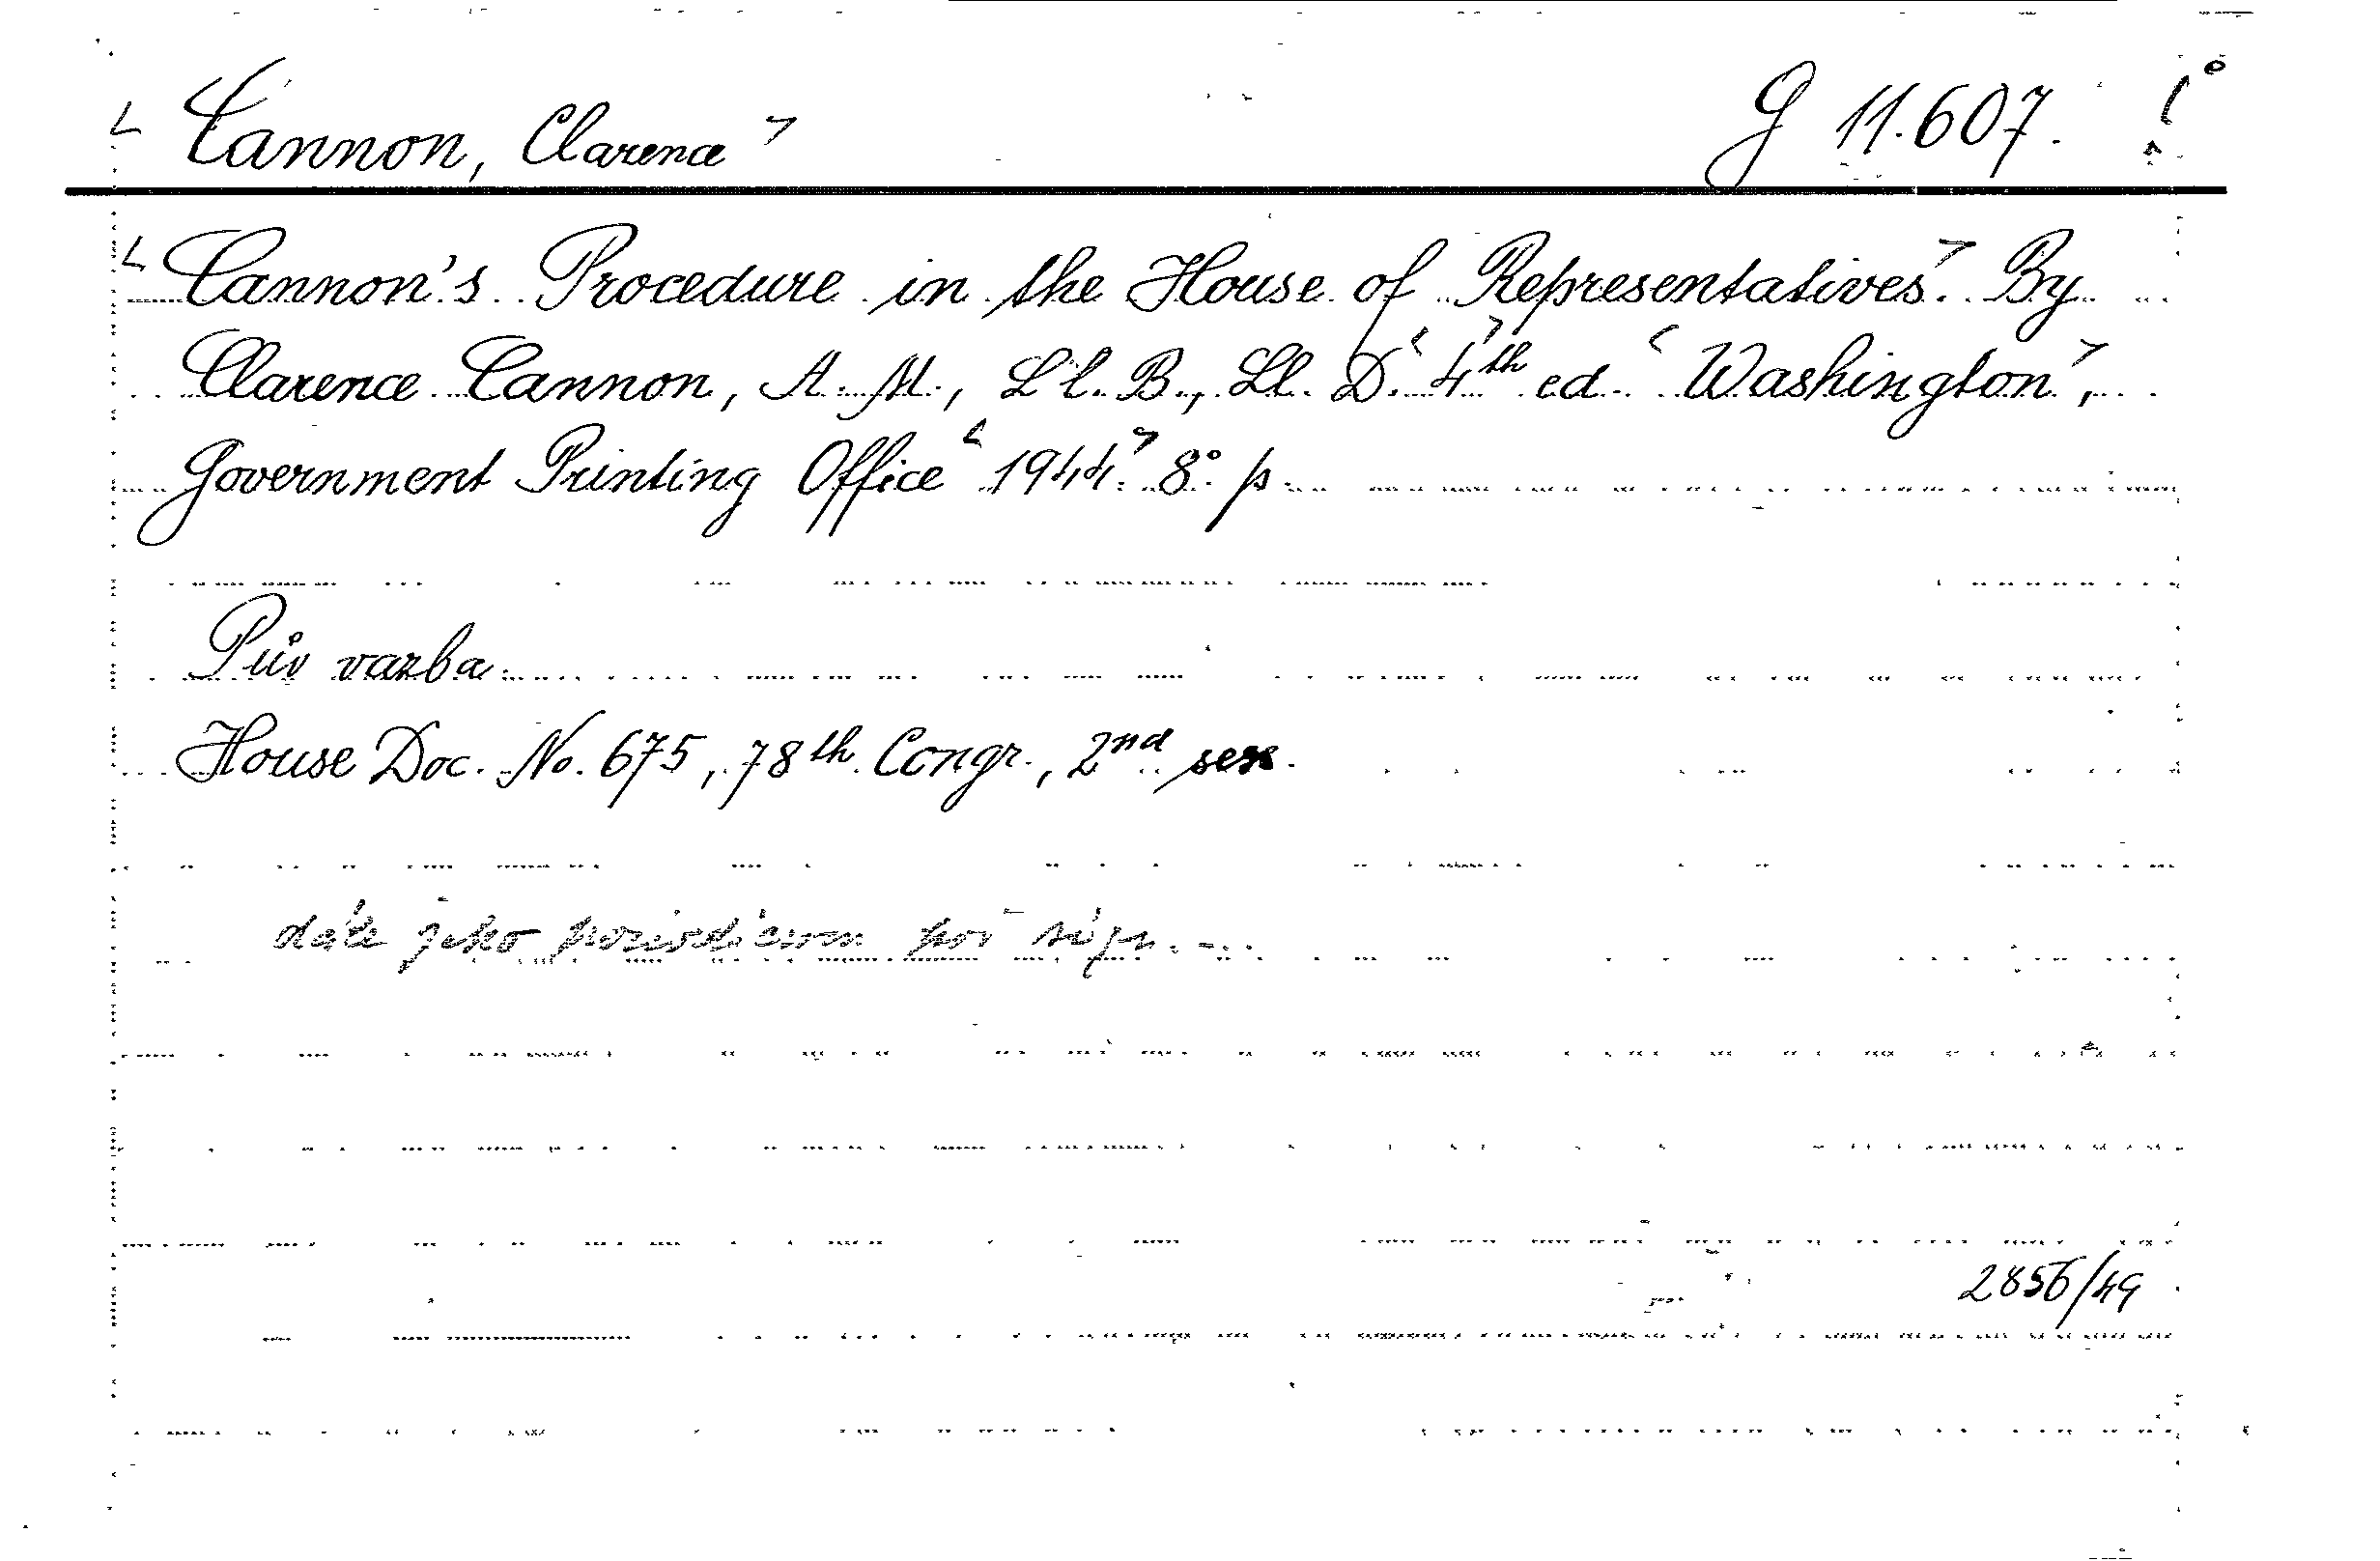 < Cannon, Clarence > G 11.607.
< Cannon's Procedure in the House of Representatives.> By
Clarence Cannon, A. M., Ll. B., Ll. D. < 4th > ed. < Washington >,
Government Printing Office < 1944.> 8° p.
Pův vazba.
House Doc. No. 675, 78th Congr., 2nd sess.
dále jako periodicum pod sign. -..
2856/49